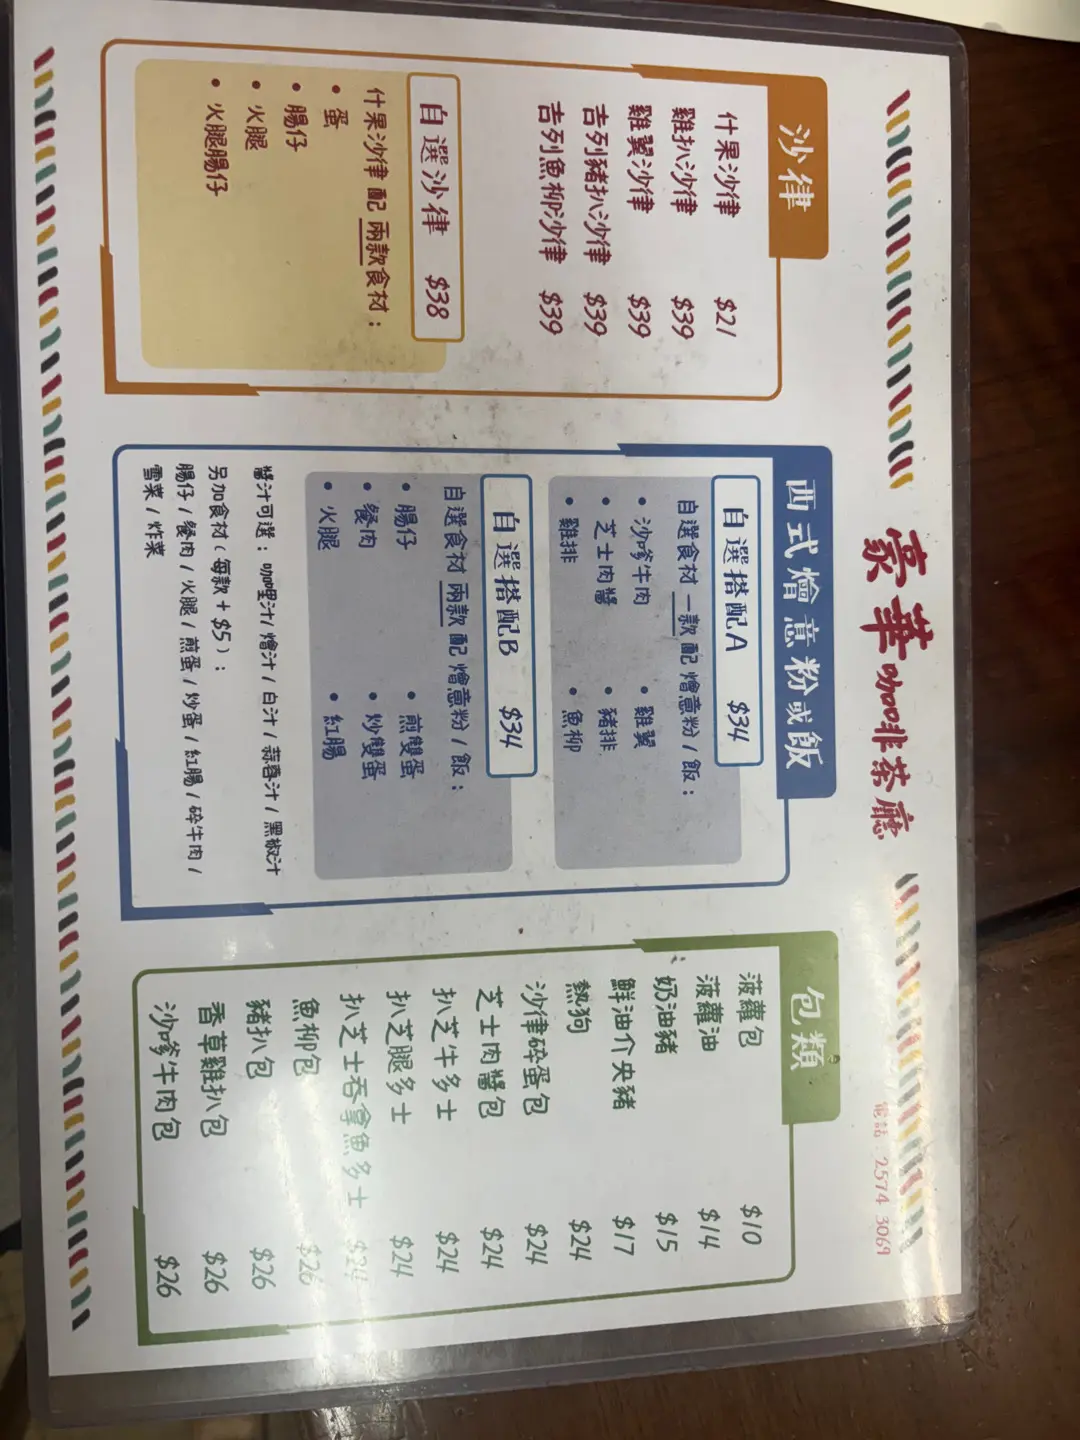 豪華咖啡茶廳
電話：2574 3069
沙律
什果沙律 $21
雞扒沙律 $39
雞翼沙律 $39
吉列豬扒沙律 $39
吉列魚柳沙律 $39
自選沙律 $38
什果沙律 配 兩款食材：
• 蛋
• 腸仔
• 火腿
• 火腿腸仔
西式燴意粉或飯
自選搭配A $34
自選食材 一款 配 燴意粉 / 飯：
• 沙嗲牛肉 • 雞翼
• 芝士肉醬 • 豬排
• 雞排 • 魚柳
自選搭配B $34
自選食材 兩款 配 燴意粉 / 飯：
• 腸仔 • 煎雙蛋
• 餐肉 • 炒雙蛋
• 火腿 • 紅腸
醬汁可選：咖喱汁 / 燴汁 / 白汁 / 蒜蓉汁 / 黑椒汁
另加食材（每款 + $5）：
腸仔 / 餐肉 / 火腿 / 煎蛋 / 炒蛋 / 紅腸 / 碎牛肉 /
雪菜 / 炸菜
包類
菠蘿包 $10
菠蘿油 $14
奶油豬 $15
鮮油介央豬 $17
熱狗 $24
沙律碎蛋包 $24
芝士肉醬包 $24
扒芝牛多士 $24
扒芝腿多士 $24
扒芝士吞拿魚多士 $24
魚柳包 $26
豬扒包 $26
香草雞扒包 $26
沙嗲牛肉包 $26